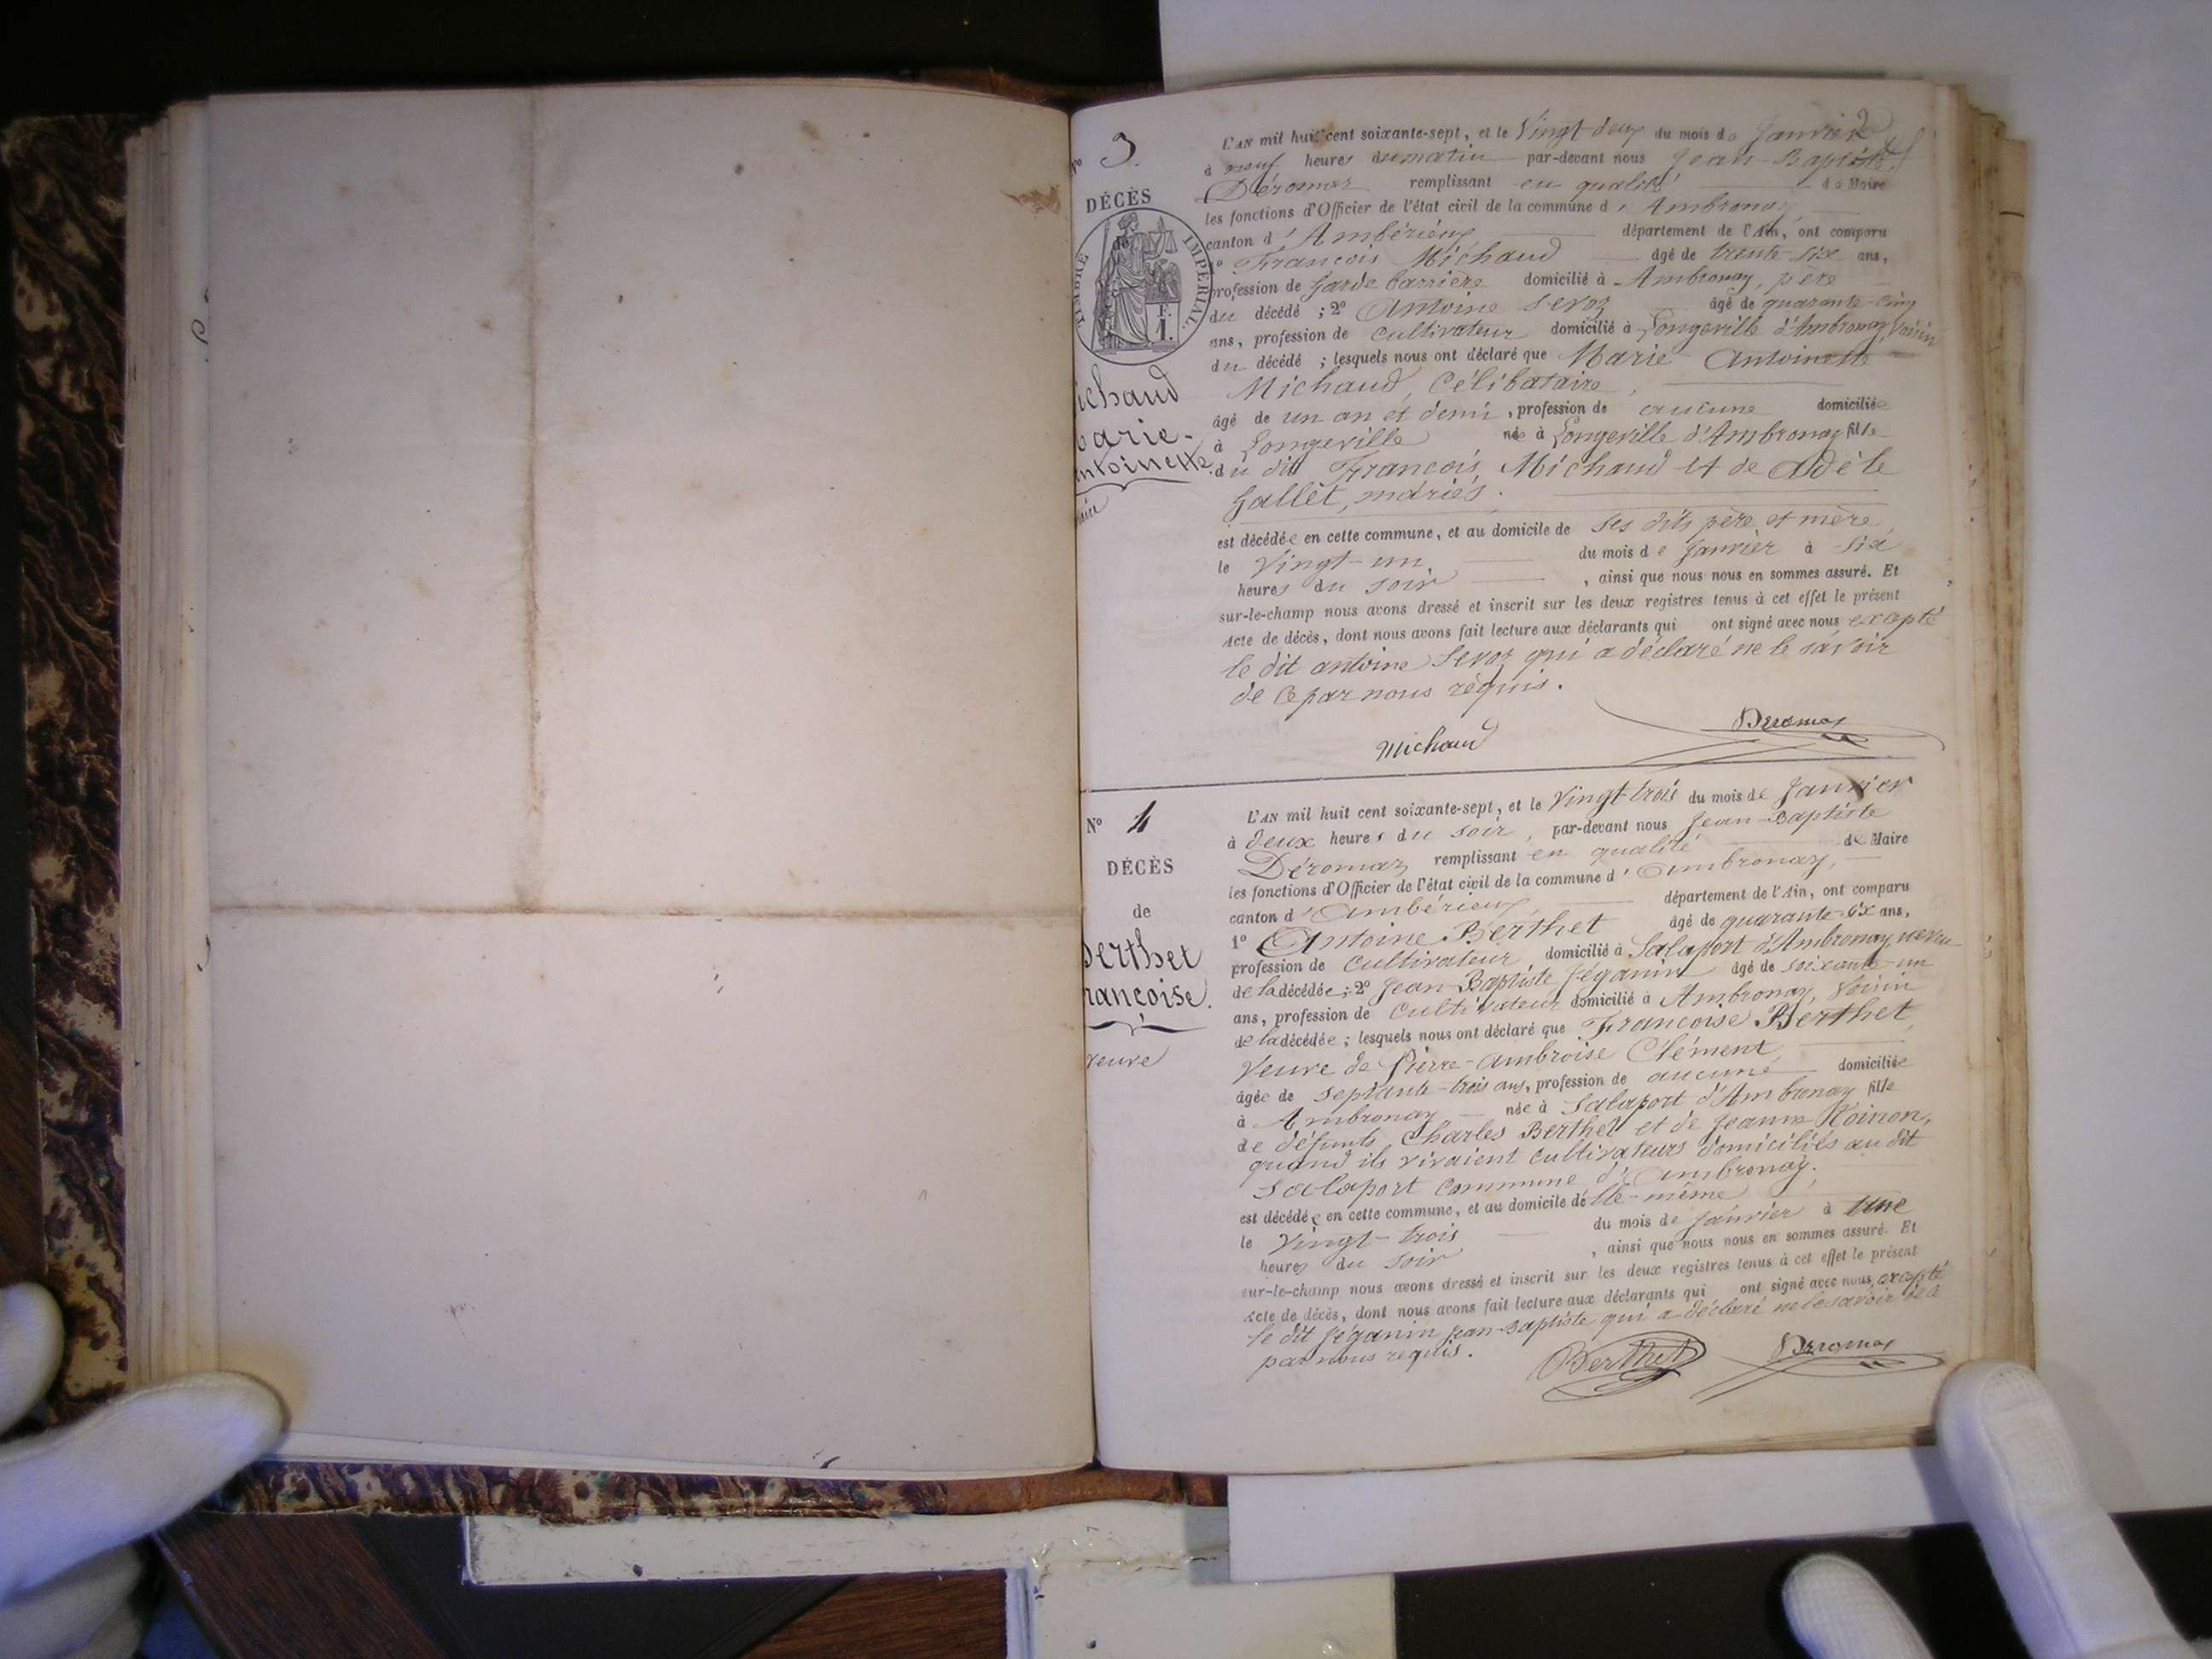 2
N° 3.
DÉCÈS
de
TIMBRE IMPÉRIAL.
F.
1.
ichaud
arie-
ntoinette.
L'AN mil huit cent soixante-sept, et le Vingt deux du mois de Janvier
à neuf heures du matin par-devant nous Jean-Baptiste
Déromas remplissant en qualité de Maire
les fonctions d'Officier de l'état civil de la commune d'Ambronay,
canton d'Ambérieux département de l'Ain, ont comparu
1° François Michaud âgé de trente-six ans,
profession de Garde barrière domicilié à Ambronay, père
du décédé ; 2° Antoine Sevoz âgé de quarante-cinq
ans, profession de cultivateur domicilié à Longeville d'Ambronay, voisin
du décédé ; lesquels nous ont déclaré que Marie Antoinette
Michaud, Célibataire,
âgé de un an et demi, profession de aucune domiciliée
à Longeville née à Longeville d'Ambronay fille
du dit François Michaud et de Adèle
Gallet, mariés.
est décédée en cette commune, et au domicile de ses dits père et mère,
le Vingt-un du mois de Janvier à six
heures du soir, ainsi que nous nous en sommes assuré. Et
sur-le-champ nous avons dressé et inscrit sur les deux registres tenus à cet effet le présent
Acte de décès, dont nous avons fait lecture aux déclarants qui ont signé avec nous excepté
le dit antoine Sevoz qui a déclaré ne le savoir
de ce par nous requis.
Michaud Deromas
N° 4
DÉCÈS
de
Berthet
rançoise.
veuve
L'AN mil huit cent soixante-sept, et le Vingt-trois du mois de Janvier
à deux heures du soir, par-devant nous Jean-Baptiste
Déromas remplissant en qualité de Maire
les fonctions d'Officier de l'état civil de la commune d'Ambronay,
canton d'Ambérieux, département de l'Ain, ont comparu
1° Antoine Berthet âgé de quarante-six ans,
profession de Cultivateur domicilié à Salaport d'Ambronay, neveu
de la décédée ; 2° Jean-Baptiste Féganin âgé de soixante-un
ans, profession de Cultivateur domicilié à Ambronay, voisin
de la décédée ; lesquels nous ont déclaré que Françoise Berthet,
Veuve de Pierre-Ambroise Clément,
âgée de septante-trois ans, profession de aucune domiciliée
à Ambronay née à Salaport d'Ambronay fille
de défunts Charles Berthet et de Jeanne
quand ils vivaient cultivateurs domiciliés au dit
Salaport commune d'Ambronay.
est décédée en cette commune, et au domicile d'elle-même
le Vingt-trois du mois de Janvier à une
heures du soir, ainsi que nous nous en sommes assuré. Et
sur-le-champ nous avons dressé et inscrit sur les deux registres tenus à cet effet le présent
Acte de décès, dont nous avons fait lecture aux déclarants qui ont signé avec nous excepté
le dit Féganin Jean-Baptiste qui a déclaré ne le savoir de ce
par nous requis.
Berthet Deromas